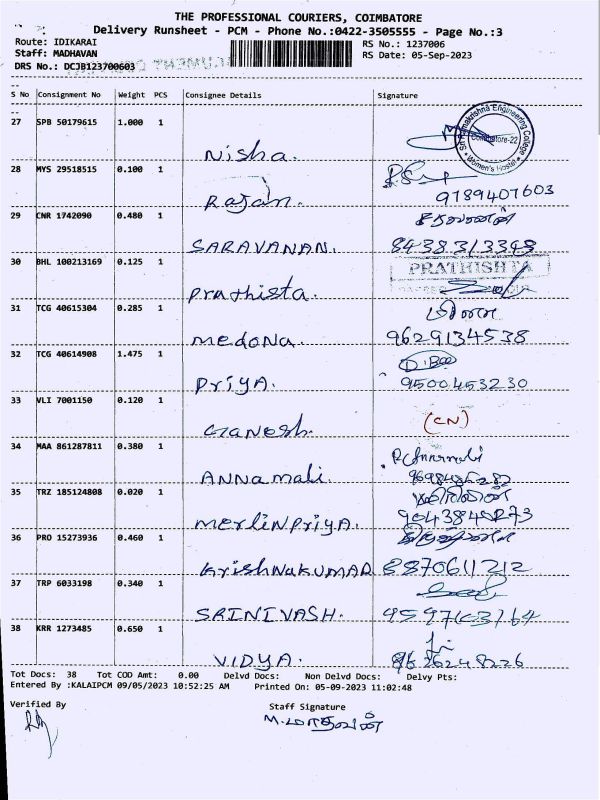 THE PROFESSIONAL COURIERS, COIMBATORE
Delivery Runsheet - PCM - Phone No.:0422-3505555 - Page No.:3
Route: IDIKARAI
RS No.: 1237006
Staff: MADHAVAN
RS Date: 05-Sep-2023
DRS No.: DCJB123700603
S No Consignment No Weight PCS Consignee Details Signature
27 SPB 50179615 1.000 1
Nisha.
Sri Ramakrishna Engineering College
Coimbatore-22
Women's Hostel
28 MYS 29518515 0.100 1
Rajan. 9789407603
29 CNR 1742090 0.480 1
சரவணன்
SARAVANAN. 8438313348
30 BHL 100213169 0.125 1
PRATHISHTA
Prathista.
31 TCG 40615304 0.285 1
Medona. 9629134538
32 TCG 40614908 1.475 1
Priya. 9500453230
33 VLI 7001150 0.120 1
Ganesh. (CN)
34 MAA 861287811 0.380 1
Annamali.
35 TRZ 185124808 0.020 1
MerlinPriya. 9043848273
36 PRO 15273936 0.460 1
KrishnaKUMAR 8870611212
37 TRP 6033198 0.340 1
SRINIVASH.
38 KRR 1273485 0.650 1
VIDYA.
Tot Docs: 38 Tot COD Amt: 0.00 Delvd Docs: Non Delvd Docs: Delvy Pts:
Entered By :KALAIPCM 09/05/2023 10:52:25 AM Printed On: 05-09-2023 11:02:48
Verified By Staff Signature
M.மாதவன்